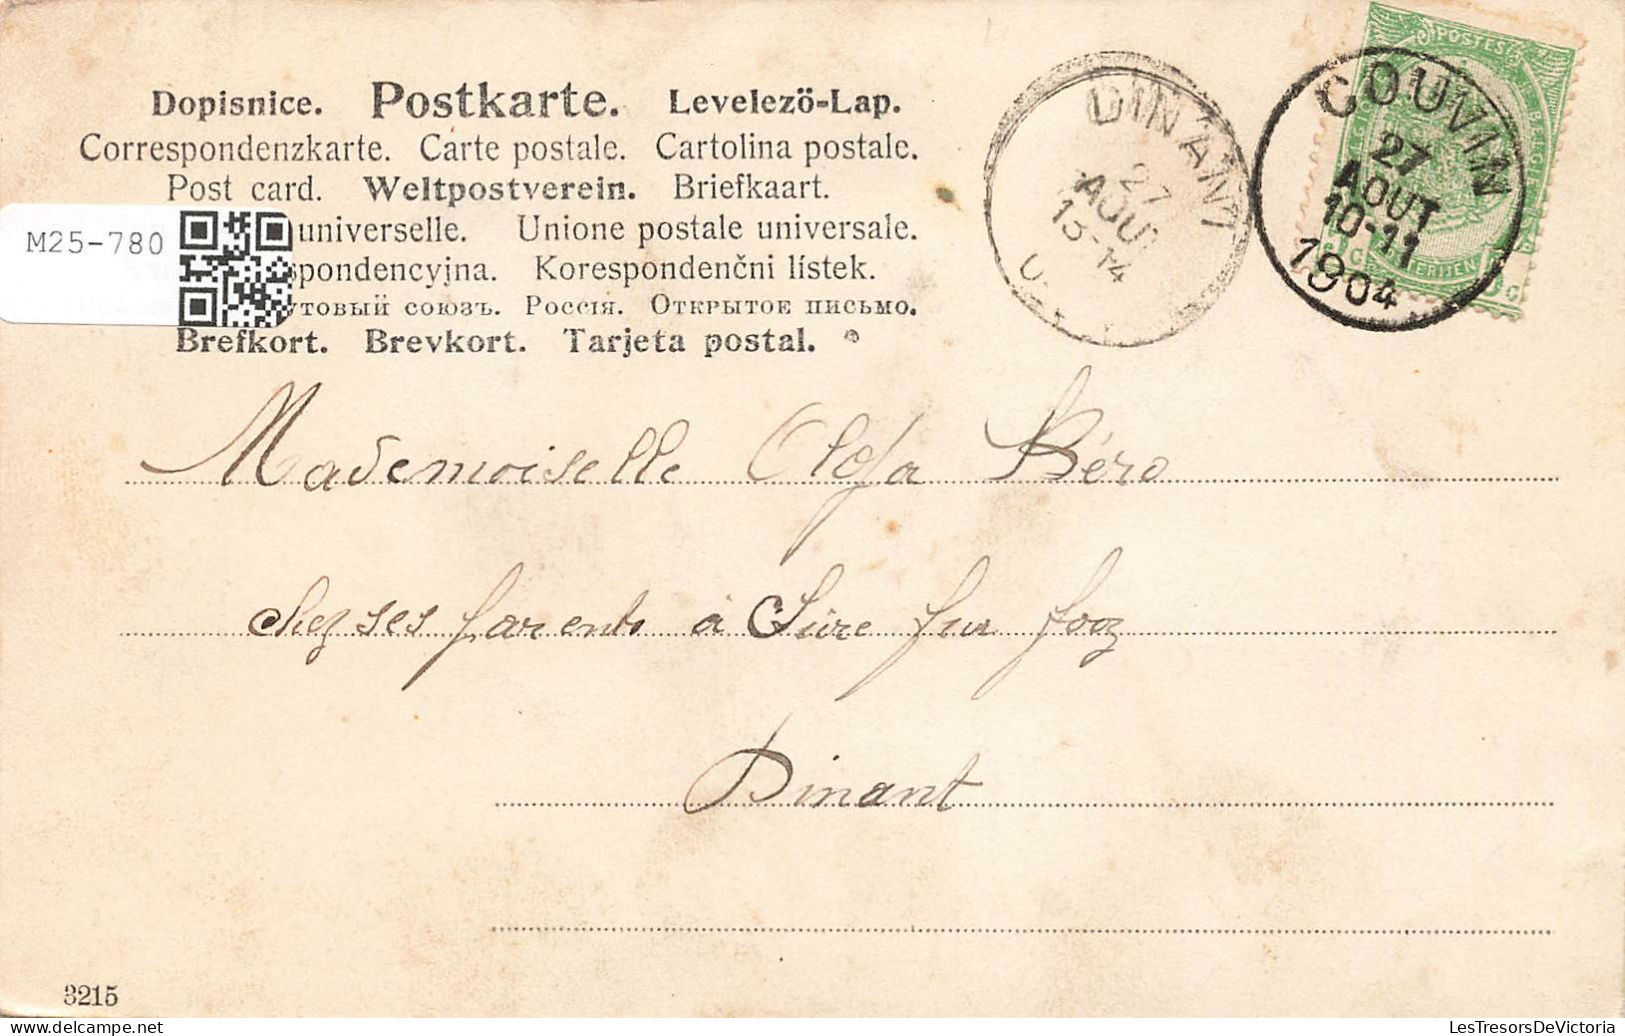 Dopisnice. Postkarte. Levelező-Lap.
Correspondenzkarte. Carte postale. Cartolina postale.
Post card. Weltpostverein. Briefkaart.
universelle. Unione postale universale.
spondencyjna. Korespondenční lístek.
товый союзъ. Россія. Открытое письмо.
Brefkort. Brevkort. Tarjeta postal.
M25-780
DINANT
27
AOUT
13-14
COUVIN
27
AOUT
10-11
1904
POSTES
Mademoiselle Olga Béro
chez ses parents à Sûre sur fooz
Dinant
3215
LesTresorsDeVictoria